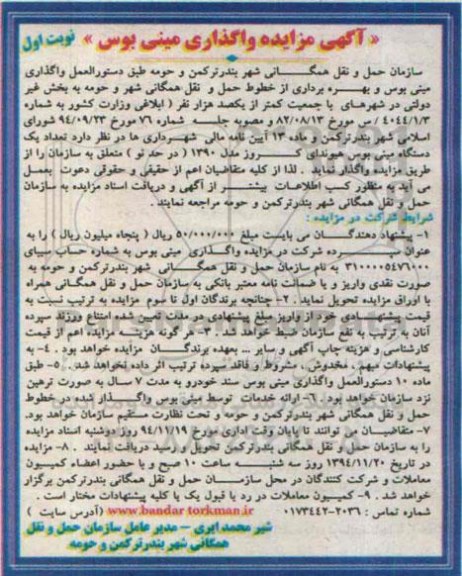 « آگهی مزایده واگذاری مینی بوس » نوبت اول
سازمان حمل و نقل همگانی شهر بندرترکمن و حومه طبق دستورالعمل واگذاری
مینی بوس و بهره برداری از خطوط حمل و نقل همگانی شهر و حومه به بخش غیر
دولتی در شهرهای با جمعیت کمتر از یکصد هزار نفر ( ابلاغی وزارت کشور به شماره
۴۰۴۴/۱/۳ / س مورخ ۸۲/۰۸/۱۳ و مصوبه جلسه شماره ۷۶ مورخ ۹۴/۰۹/۲۳ شورای
اسلامی شهر بندرترکمن و ماده ۱۳ آیین نامه مالی شهرداری ها در نظر دارد تعداد یک
دستگاه مینی بوس هیوندای کروز مدل ۱۳۹۰ ( در حد نو ) متعلق به سازمان را از
طریق مزایده واگذار نماید . لذا از کلیه متقاضیان اعم از حقیقی و حقوقی دعوت بعمل
می آید به منظور کسب اطلاعات بیشتر از آگهی و دریافت اسناد مزایده به سازمان
حمل و نقل همگانی شهر بندرترکمن و حومه مراجعه نمایند .
شرایط شرکت در مزایده :
۱- پیشنهاد دهندگان می بایست مبلغ ۵۰/۰۰۰/۰۰۰ ریال ( پنجاه میلیون ریال ) را به
عنوان سپرده شرکت در مزایده واگذاری مینی بوس به شماره حساب سیبای
۳۱۰۰۰۰۵۴۷۶۰۰۰ به نام سازمان حمل و نقل همگانی شهر بندرترکمن و حومه به
صورت نقدی واریز و یا ضمانت نامه معتبر بانکی به سازمان حمل و نقل همگانی همراه
با اوراق مزایده تحویل نماید . ۲- چنانچه برندگان اول تا سوم مزایده به ترتیب نسبت به
قیمت پیشنهادی خود از واریز مبلغ پیشنهادی در مدت تعیین شده امتناع ورزند سپرده
آنان به ترتیب به نفع سازمان ضبط خواهد شد . ۳- هر گونه هزینه مزایده اعم از قیمت
کارشناسی و هزینه چاپ آگهی و سایر ... بعهده برندگان مزایده خواهد بود . ۴- به
پیشنهادات مبهم ، مخدوش ، مشروط و فاقد سپرده ترتیب اثر داده نخواهد شد . ۵- طبق
ماده ۱۰ دستورالعمل واگذاری مینی بوس سند خودرو به مدت ۷ سال به صورت ترهین
نزد سازمان خواهد بود . ۶- ارائه خدمات توسط مینی بوس واگذار شده در خطوط
حمل و نقل همگانی شهر بندرترکمن و حومه و تحت نظارت مستقیم سازمان خواهد بود.
۷- متقاضیان می توانند تا پایان وقت اداری مورخ ۹۴/۱۱/۱۹ روز دوشنبه اسناد مزایده
را به سازمان حمل و نقل همگانی بندرترکمن تحویل و رسید دریافت نمایند . ۸- مزایده
در تاریخ ۱۳۹۴/۱۱/۲۰ روز سه شنبه ساعت ۱۰ صبح و با حضور اعضاء کمیسون
معاملات و شرکت کنندگان در محل سازمان حمل و نقل همگانی بندرترکمن برگزار
خواهد شد . ۹- کمیسون معاملات در رد یا قبول یک یا کلیه پیشنهادات مختار است .
شماره تماس : ۲۰۳۶-۰۱۷۳۴۴۲ www.bandar torkman.ir (آدرس سایت )
شیر محمد ایری – مدیر عامل سازمان حمل و نقل
همگانی شهر بندرترکمن و حومه